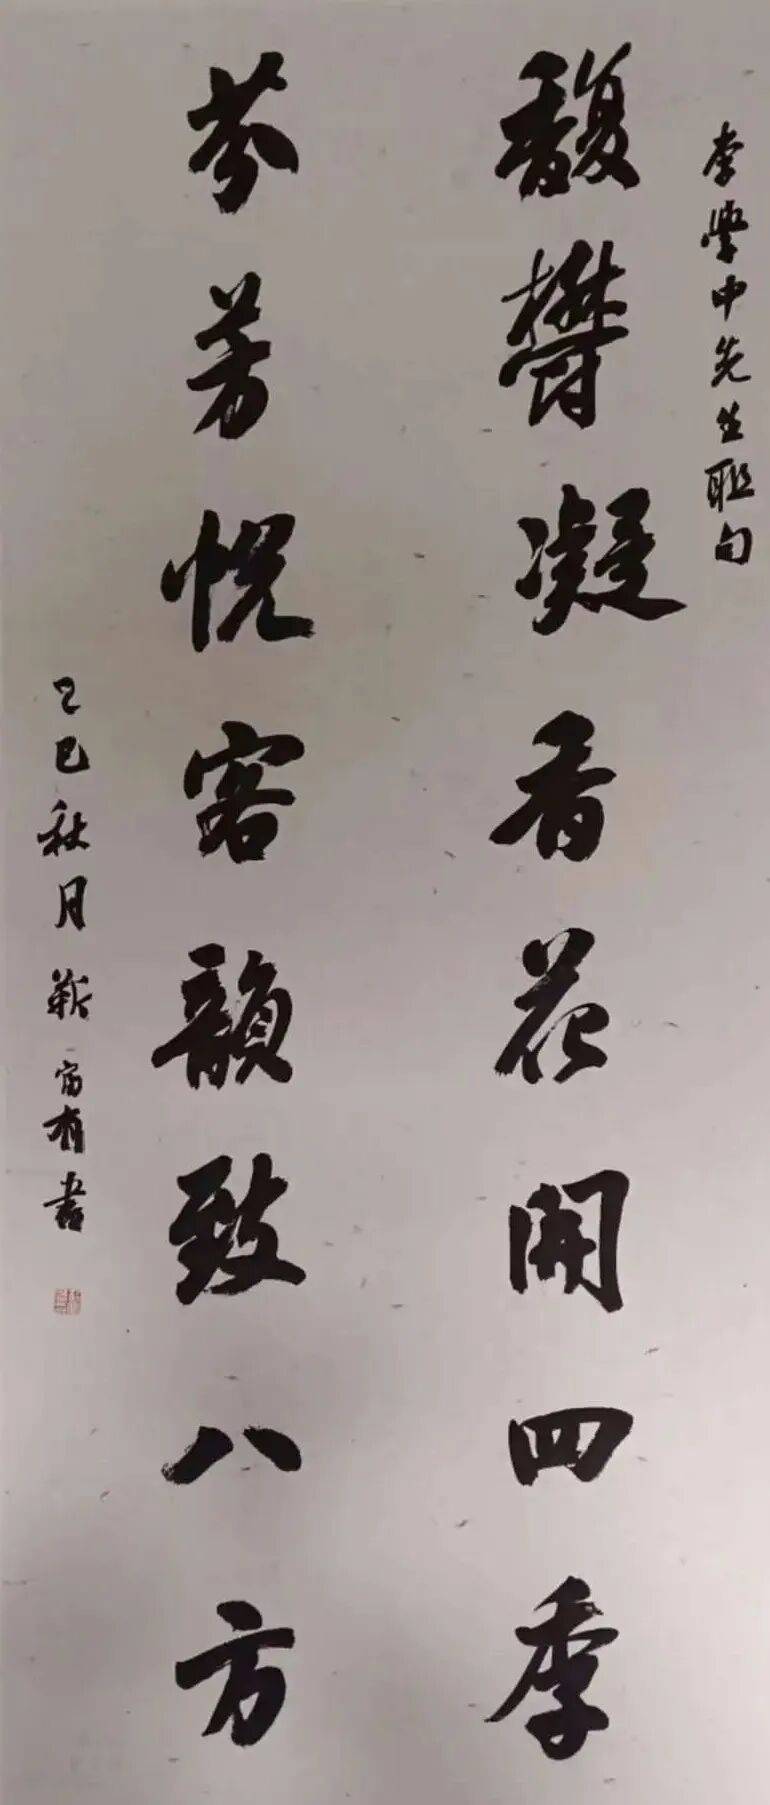 李學中先生聯句
馥欝凝香花開四季
芬芳悦客韻致八方
乙巳秋月靳富有書